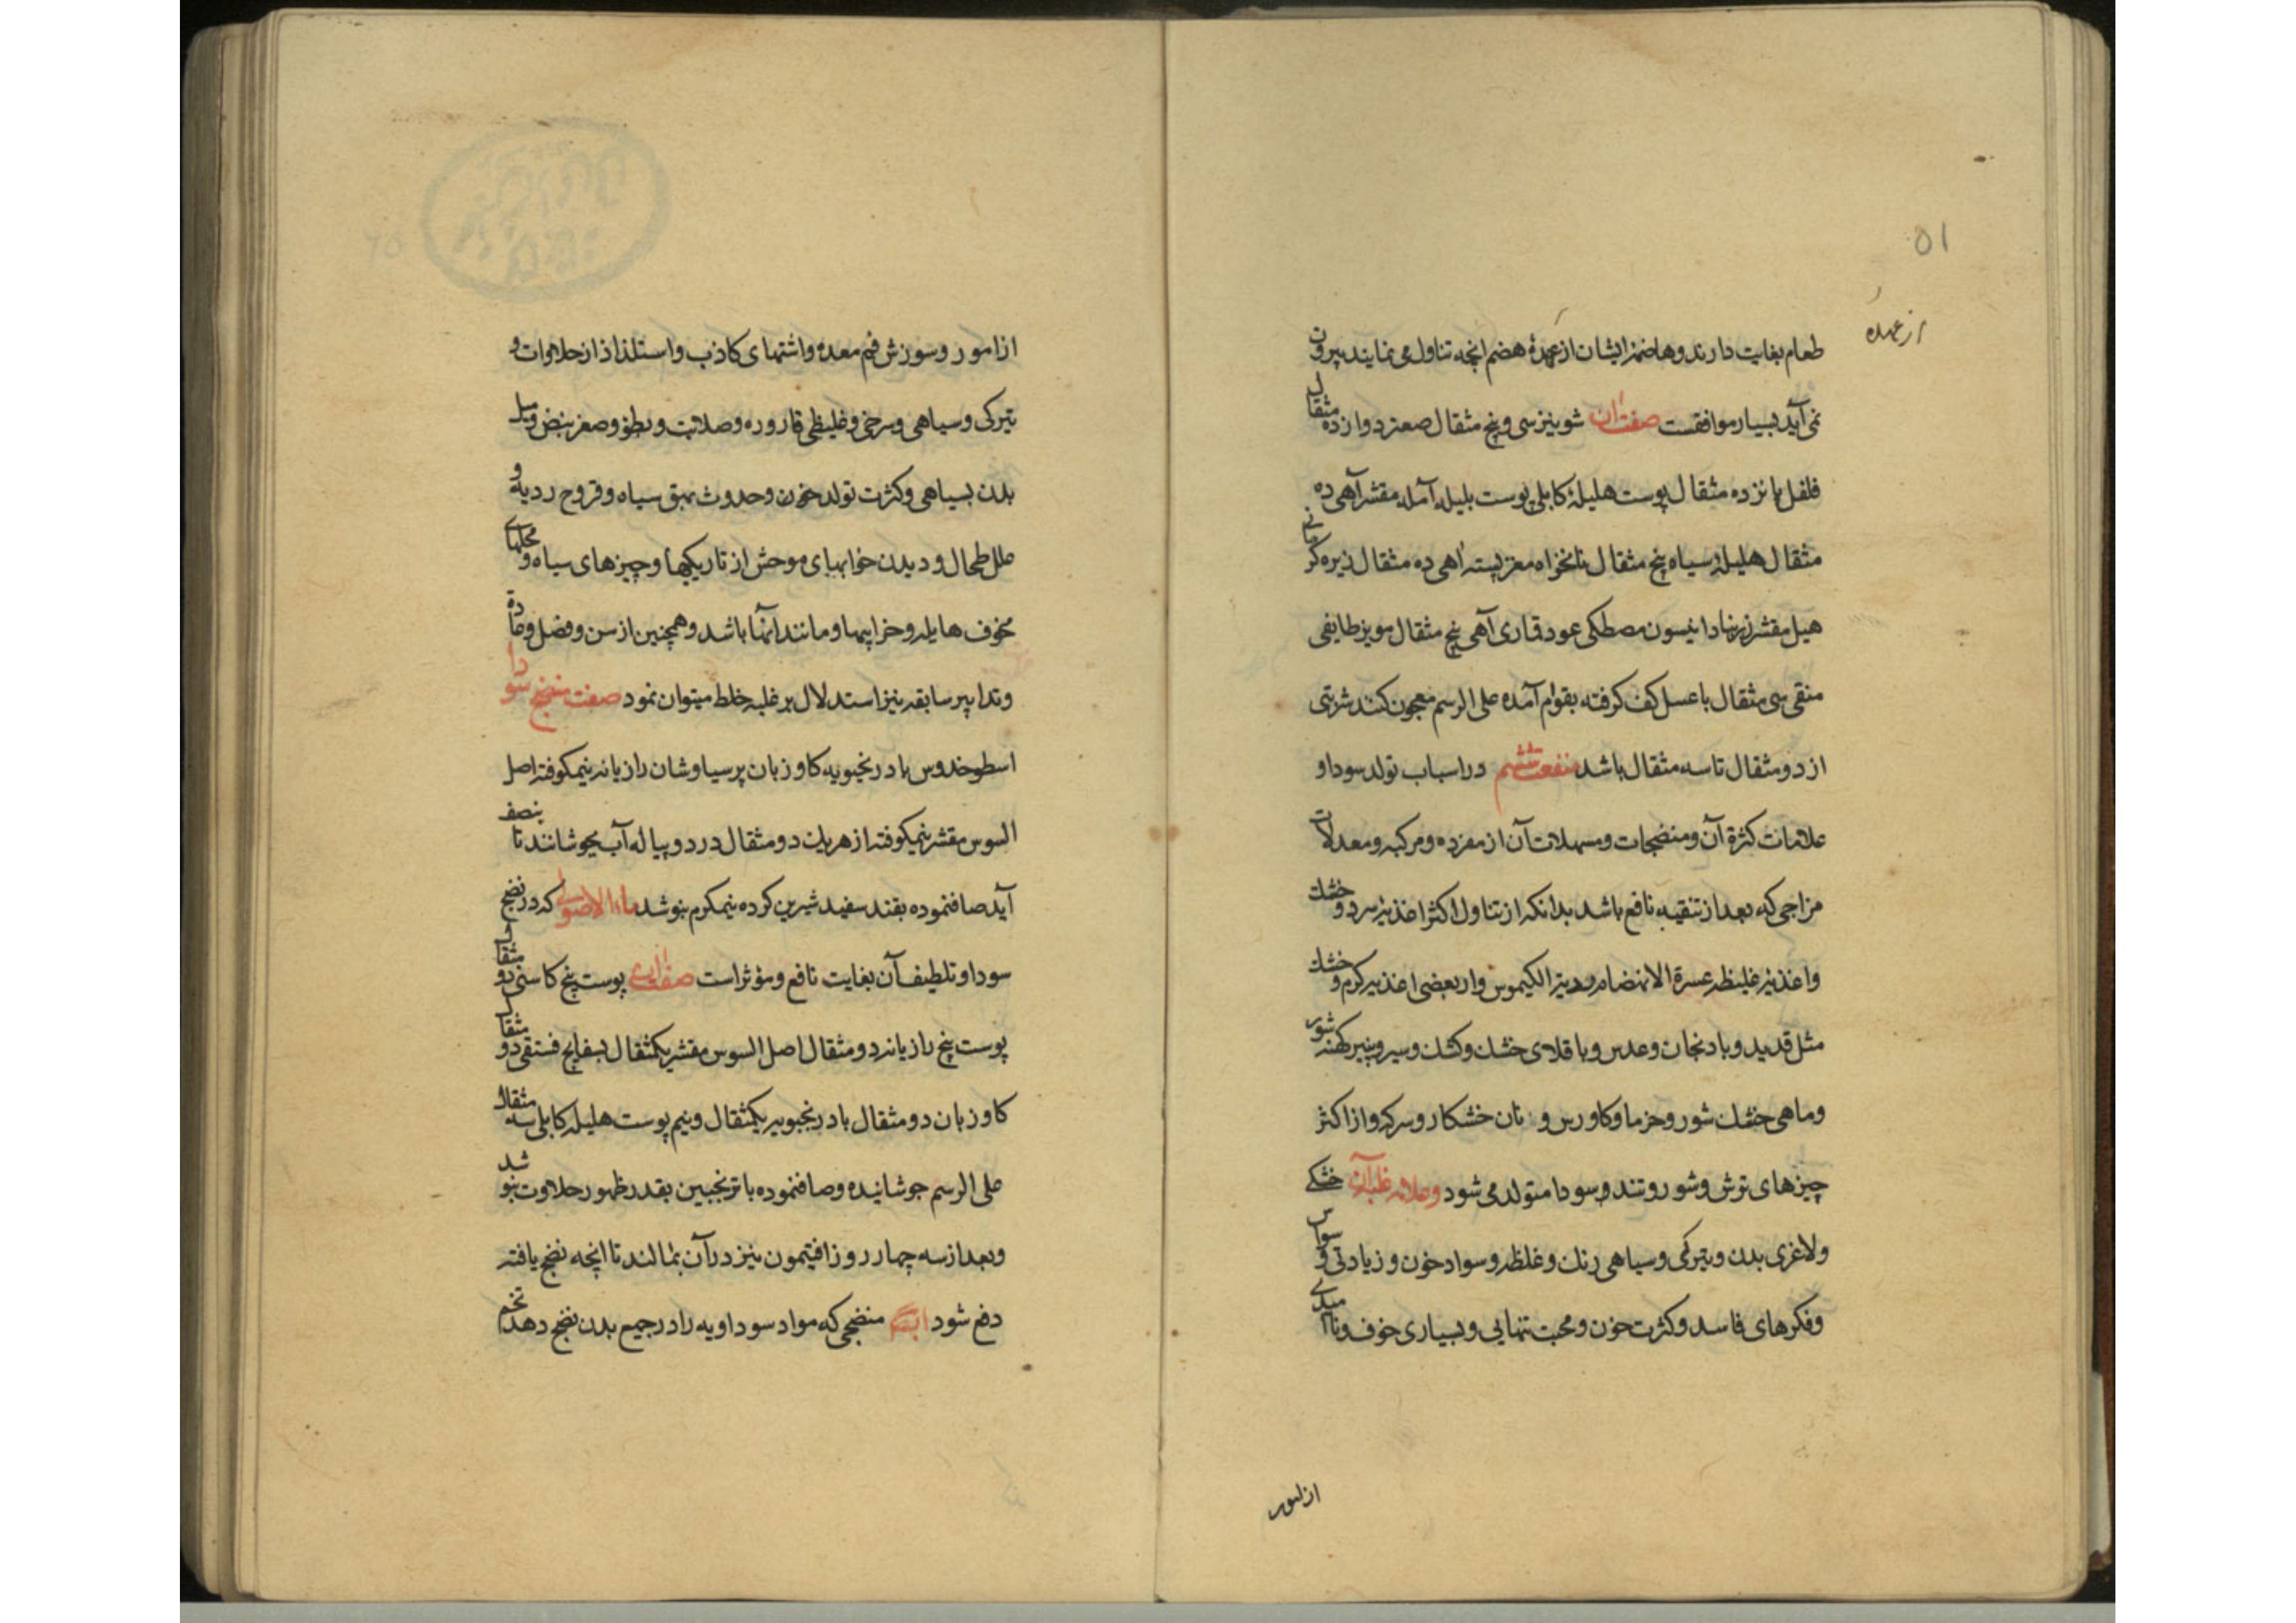 ۵۱
از عهده
طعام بغایت دارند و هاضمه ایشان از عهدهٔ هضم انچه تناول می نمایند بیرون
نمی آید بسیار موافقست صفت آن شونیز سی و پنج مثقال صعتر دوازده مثقال
فلفل پانزده مثقال پوست هلیلهٔ کابلی پوست بلیله آمله مقشر آهی ده
مثقال هلیلهٔ سیاه پنج مثقال نانخواه مغز پسته آهی ده مثقال زیره کرمانی
هیل مقشر زرنباد انیسون مصطکی عود قاری آهی پنج مثقال مویز طایفی
منقی سی مثقال با عسل کف کرفته بقوام آمده علی الرسم معجون کنند شربتی
از دو مثقال تا سه مثقال باشد منفعت ششم در اسباب تولد سودا و
علامات کثرة آن و منضجات و مسهلات آن از مفرده و مرکبه و معدلات
مزاجی که بعد از تنقیه نافع باشد بدانکه از تناول اکثر اغذیه سرد و خشك
و اغذیه غلیظه عسرة الانهضام ردیة الکیموس و از بعضی اغذیه کرم و خشك
مثل قدید و بادنجان و عدس و باقلای خشك و کشك و سیر و پنیر کهنه شور
و ماهی خشك شور و خرما و کاورس و نان خشکار و سرکه و از اکثر
چیزهای ترش و شور و تند و سودا متولد می شود و علامه غلبه آن خشکی
و لاغری بدن و تیرکی و سیاهی رنك و غلظه و سواد خون و زیادتی وسواس
و فکرهای فاسد و کثرت خون و محبت تنهایی و بسیاری خوف و ناامیدی
از امور و سوزش فم معده و اشتهای کاذب و استلذاذ از حلاوات و
تیرکی و سیاهی و سرخی و غلیظی قاروره و صلابت و بطؤ و صغر نبض و میل
بدن بسیاهی و کثرت تولد خون و حدوث بهق سیاه و قروح ردیه و
علل طحال و دیدن خوابهای موحش از تاریکیها و چیزهای سیاه و محلهای
مخوف هایله و خرابیها و مانند آنها باشد و همچنین از سن و فصل و عادة
و تدابیر سابقه نیز استدلال بر غلبه خلط میتوان نمود صفت منضج سودا
اسطوخدوس بادرنجبویه کاوزبان پرسیاوشان رازیانه نیمکوفته اصل
السوس مقشر نیمکوفته از هریك دو مثقال در دو پیاله آب بجوشانند تا بنصف
آید صاف نموده بقند سفید شیرین کرده نیمکرم بنوشد ماء الاصولی که در نضج
سودا و تلطیف آن بغایت نافع و مؤثر است صفت آن پوست بیخ کاسنی دو مثقال
پوست بیخ رازیانه دو مثقال اصل السوس مقشر یکمثقال بسفایج فستقی دو مثقال
کاوزبان دو مثقال بادرنجبویه یکمثقال و نیم پوست هلیله کابلی سه مثقال
علی الرسم جوشانیده و صاف نموده با ترنجبین بقدر ظهور حلاوت بنوشد
و بعد از سه چهار روز افتیمون نیز در آن بمالند تا انچه نضج یافته
دفع شود ایضا منضجی که مواد سوداویه را در جمیع بدن نضج دهد تخم